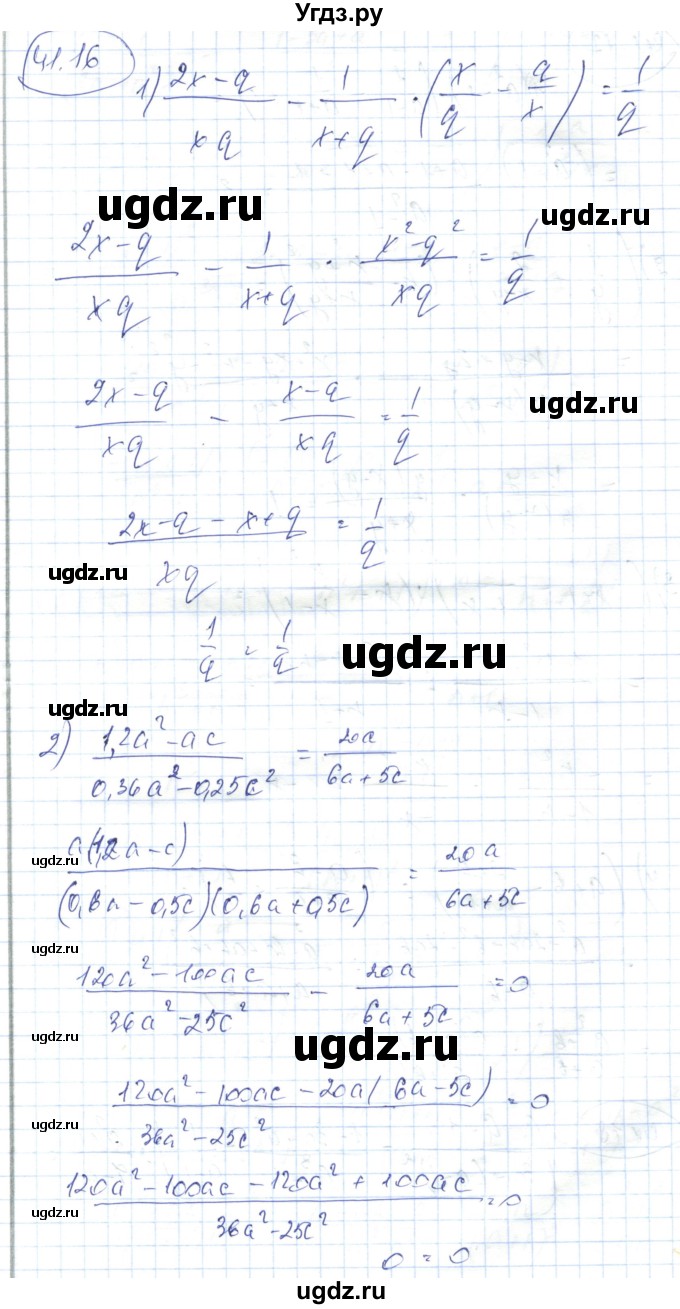 Угдз.ру
41.16
1) (2x-q)/(xq) - 1/(x+q) · (x/q - q/x) = 1/q
ugdz.ru
ugdz.ru
(2x-q)/(xq) - 1/(x+q) · (x²-q²)/(xq) = 1/q
(2x-q)/(xq) - (x-q)/(xq) = 1/q
ugdz.ru
(2x-q-x+q)/(xq) = 1/q
ugdz.ru
1/q = 1/q
ugdz.ru
2) (1,2a²-ac)/(0,36a²-0,25c²) = 20a/(6a+5c)
ugdz.ru
a(1,2a-c)/((0,6a-0,5c)(0,6a+0,5c)) = 20a/(6a+5c)
ugdz.ru
(120a²-100ac)/(36a²-25c²) - 20a/(6a+5c) = 0
ugdz.ru
ugdz.ru
(120a²-100ac-20a(6a-5c))/(36a²-25c²) = 0
ugdz.ru
(120a²-100ac-120a²+100ac)/(36a²-25c²) = 0
ugdz.ru
0 = 0
ugdz.ru